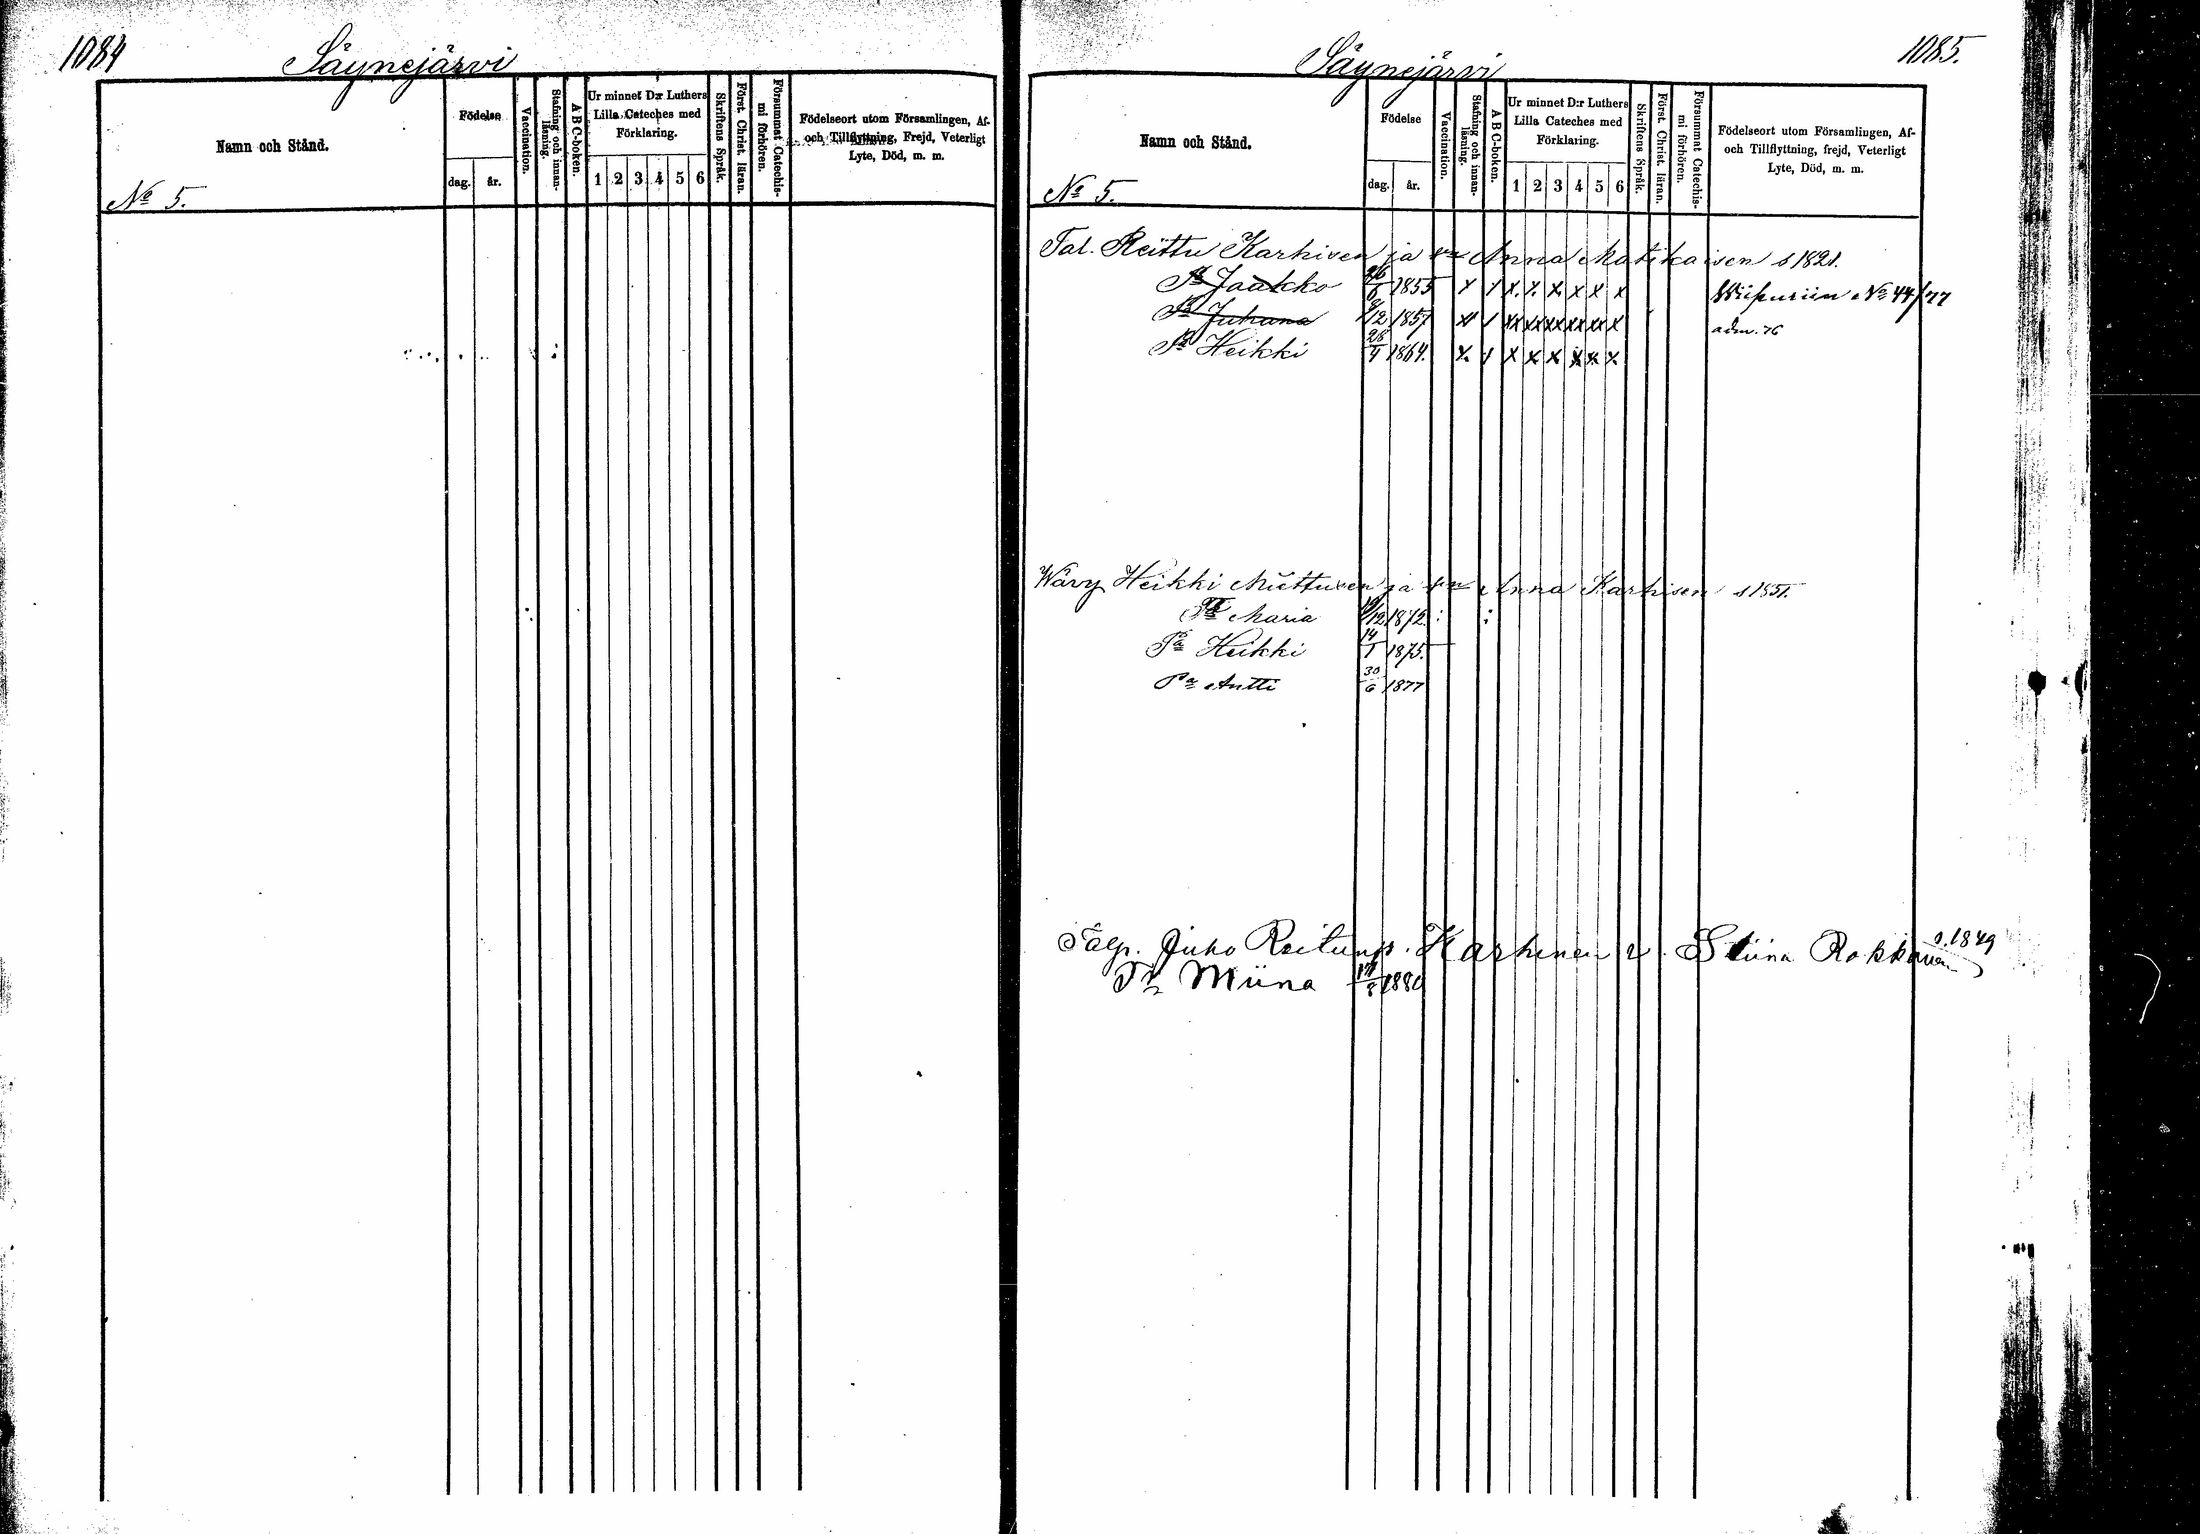 1084
Säynejärvi
Namn och Stånd.
Födelse
dag. år.
Vaccination.
Stafning och innan-läsning.
A B C-boken.
Ur minnet D:r Luthers
Lilla Cateches med
Förklaring.
1 2 3 4 5 6
Skriftens Språk.
Först. Christ. läran.
Försummat Catechis-mi förhören.
Födelseort utom Församlingen, Af-
och Tillflyttning, Frejd, Veterligt
Lyte, Död, m. m.
No 5.
Säynejärvi
1085.
Namn och Stånd.
Födelse
dag. år.
Vaccination.
Stafning och innan-läsning.
A B C-boken.
Ur minnet D:r Luthers
Lilla Cateches med
Förklaring.
1 2 3 4 5 6
Skriftens Språk.
Först. Christ. läran.
Försummat Catechis-mi förhören.
Födelseort utom Församlingen, Af-
och Tillflyttning, frejd, Veterligt
Lyte, Död, m. m.
No 5.
Tal. Reittu Karhisen ja vn Anna Matikaisen s 1821.
Pa Jaakko 26/6 1855 x x x x x x x x Wiipuriin No 44/77
Pa Juhana /12 1857 x x xx xx xx xx xx x adm. 76
Pa Heikki 28/4 1864. x x x x x x x x
Wävy Heikki Miettusen ja vn Anna Karhisen s 1851.
Tr Maria /12 1872.
Pa Heikki 14/1 1875.
Pa Antti 30/6 1877
Talp. Juho Reitunp. Karhinen v. Stiina Rokkanen s. 1849
Tr Miina 17/8 1880